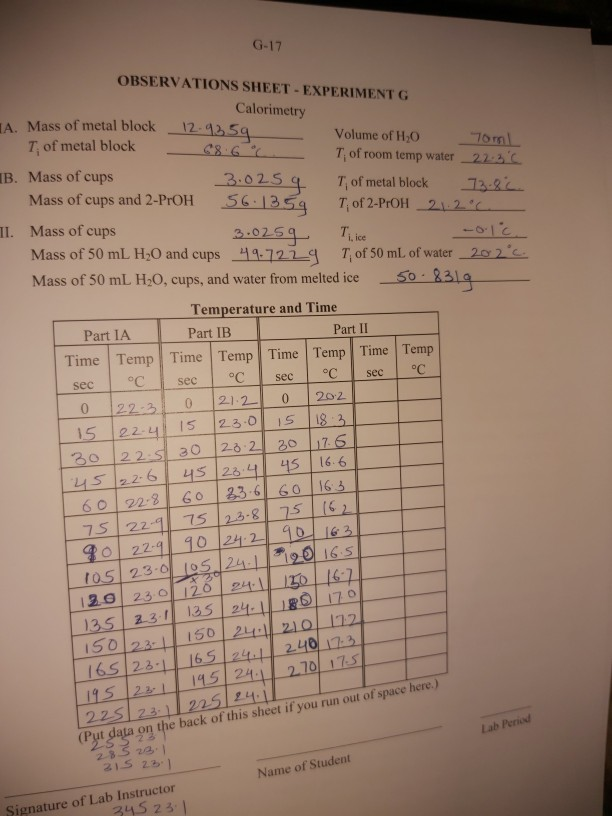 G-17
OBSERVATIONS SHEET - EXPERIMENT G
Calorimetry
IA. Mass of metal block 12.935g Volume of H₂O 70ml
Tᵢ of metal block 68.6 °C Tᵢ of room temp water 22.3°C
IB. Mass of cups 3.025g Tᵢ of metal block 73.8°C
Mass of cups and 2-PrOH 56.135g Tᵢ of 2-PrOH 21.2°C
II. Mass of cups 3.025g Tᵢ, ice -0.1°C
Mass of 50 mL H₂O and cups 49.722g Tᵢ of 50 mL of water 20.2°C
Mass of 50 mL H₂O, cups, and water from melted ice 50.831g
Temperature and Time
Part IA Part IB Part II
Time Temp Time Temp Time Temp Time Temp
sec °C sec °C sec °C sec °C
0 22.3 0 21.2 0 20.2
15 22.4 15 23.0 15 18.3
30 22.5 30 23.2 30 17.5
45 22.6 45 23.4 45 16.6
60 22.8 60 23.6 60 16.3
75 22.9 75 23.8 75 16.2
90 22.9 90 24.2 90 16.3
105 23.0 105 24.1 120 16.5
120 23.0 120 24.1 150 16.7
135 23.1 135 24.1 180 17.0
150 23.1 150 24.1 210 17.2
165 23.1 165 24.1 240 17.3
195 23.1 195 24.1 270 17.5
225 23.1 225 24.1
(Put data on the back of this sheet if you run out of space here.)
255 23.1
285 23.1
315 23.1
Signature of Lab Instructor Name of Student Lab Period
345 23.1